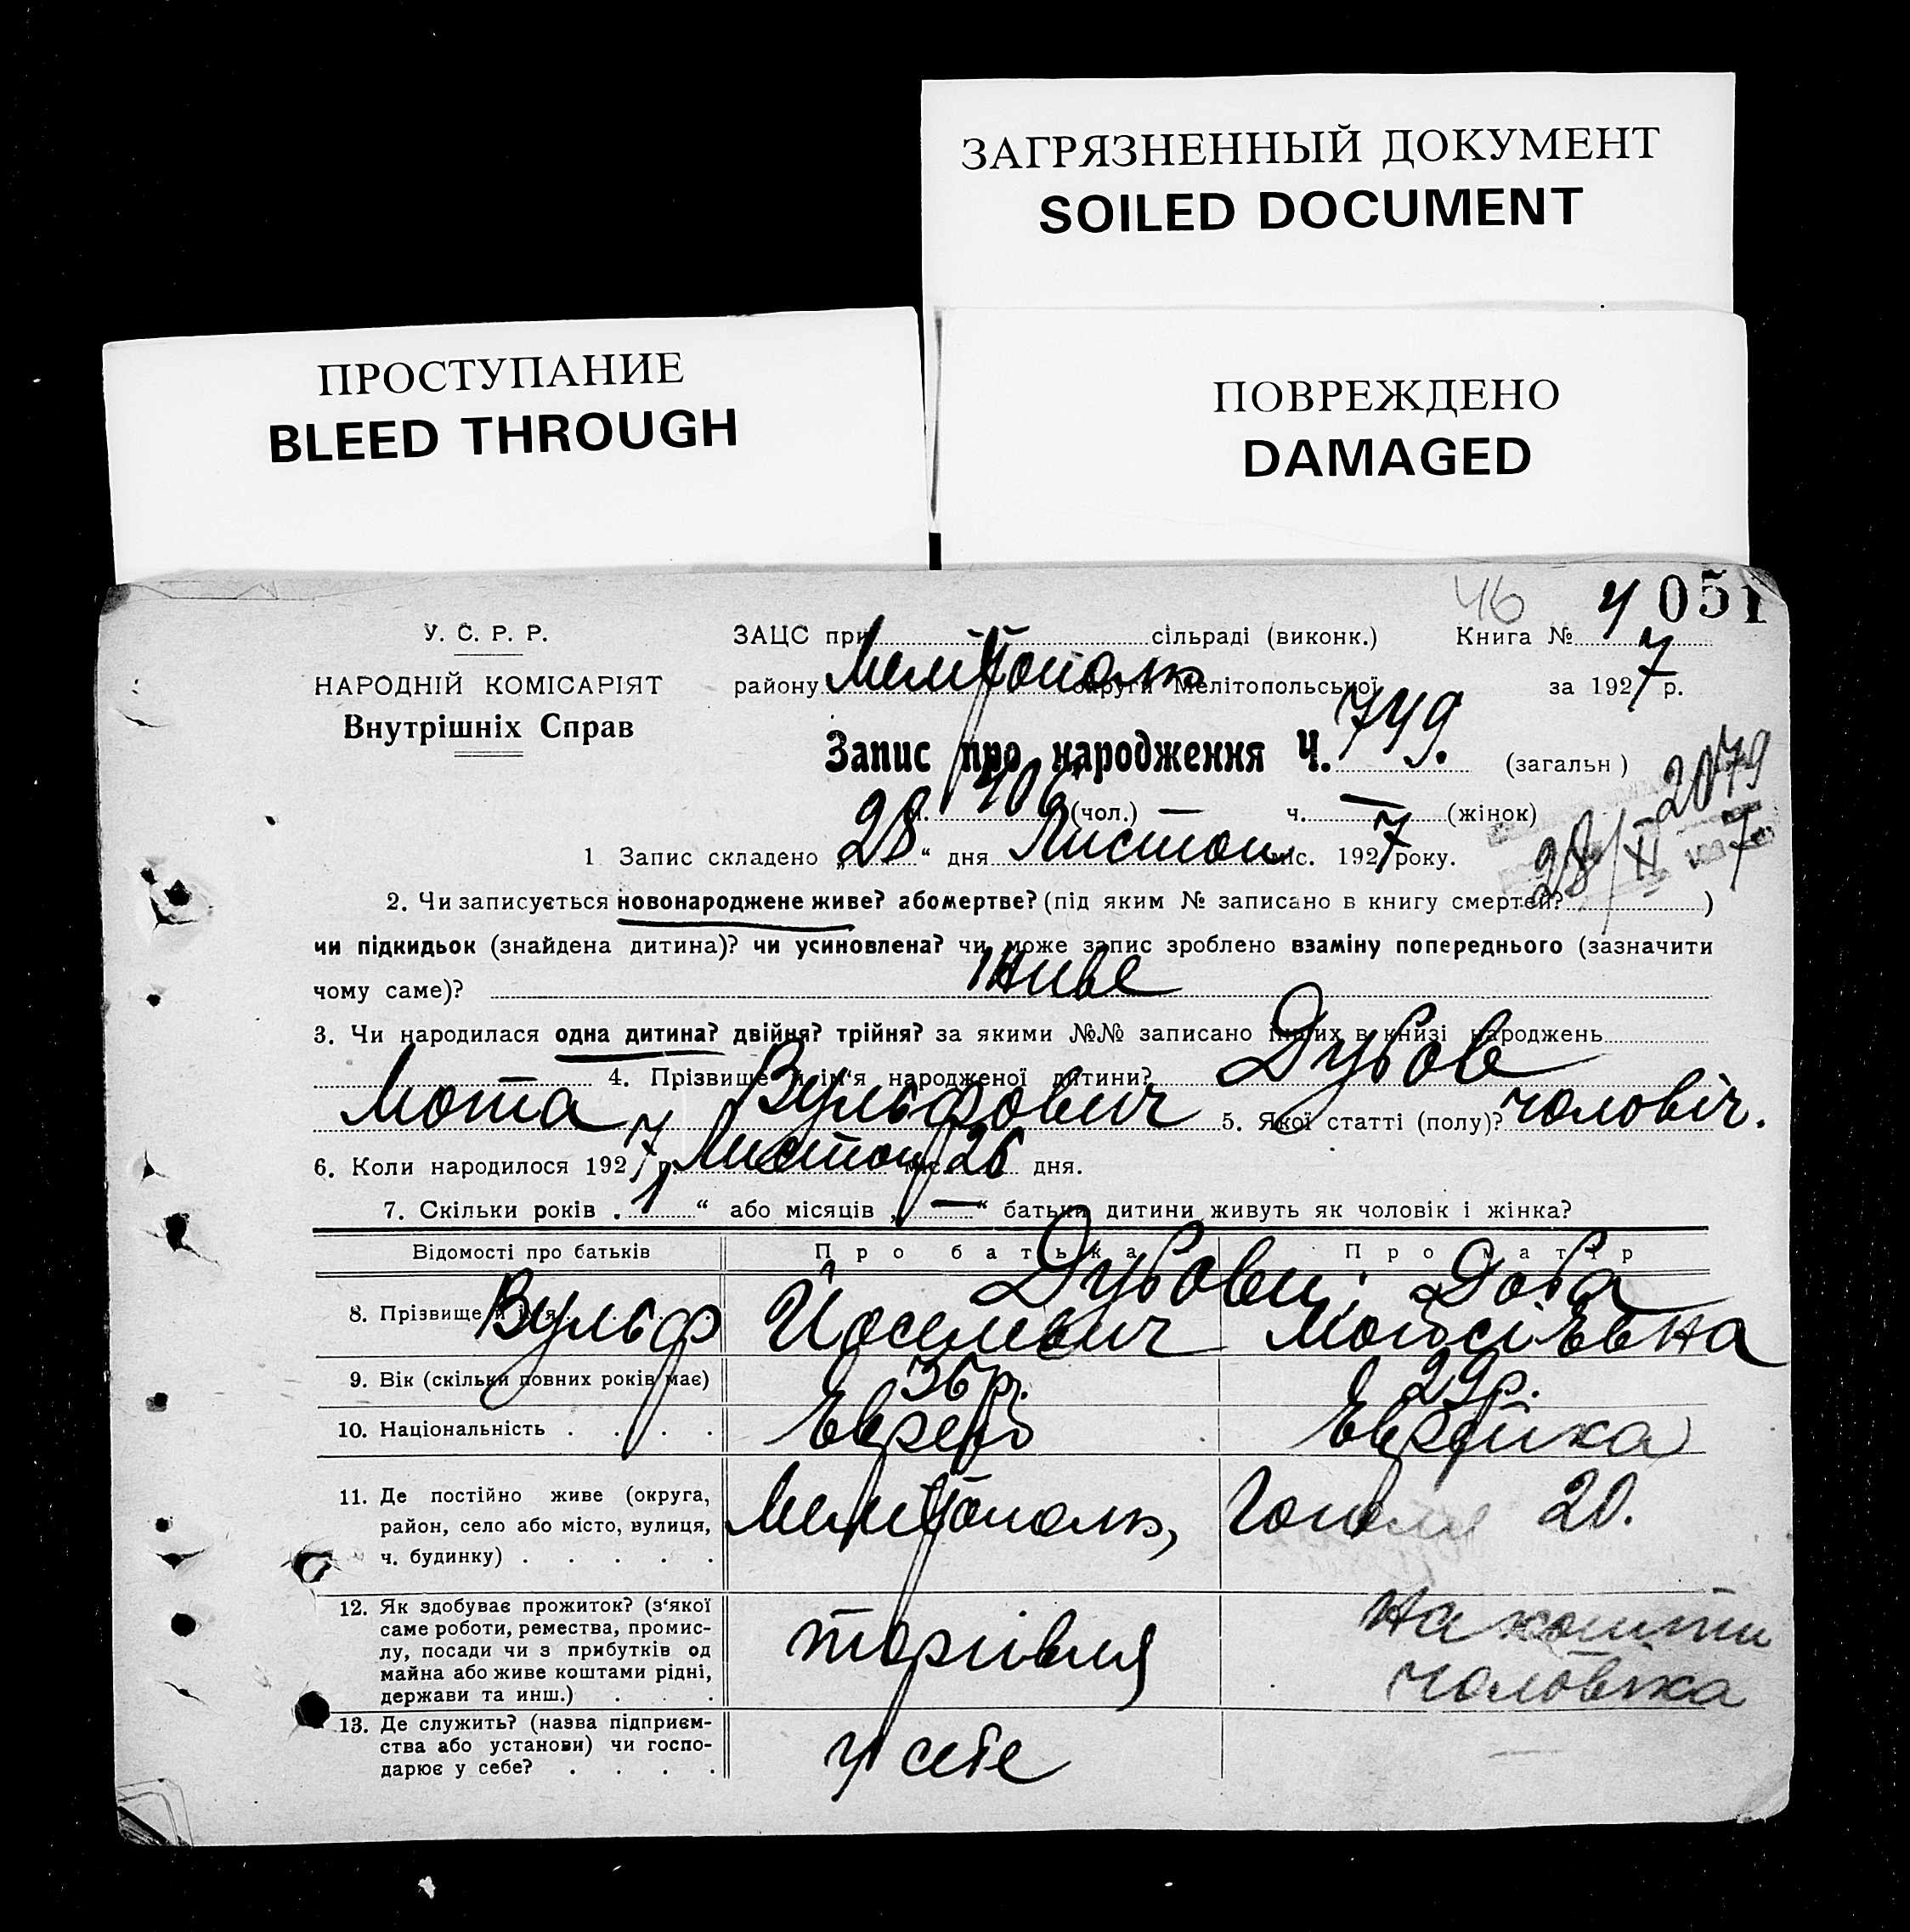 ЗАГРЯЗНЕННЫЙ ДОКУМЕНТ
SOILED DOCUMENT
ПРОСТУПАНИЕ
BLEED THROUGH
ПОВРЕЖДЕНО
DAMAGED
46 051
У. С. Р. Р.
НАРОДНІЙ КОМІСАРІЯТ
Внутрішніх Справ
ЗАЦС при сільраді (виконк.) Книга №
району Мелітополь округи Мелітопольської за 1927 р.
Запис про народження Ч. 749. (загальн)
406 (чол.) — ч. — (жінок)
2079
28/XI 7
1 Запис складено „28“ дня Листоп. міс. 1927 року.
2. Чи записується новонароджене живе? або мертве? (під яким № записано в книгу смертей? )
чи підкидьок (знайдена дитина)? чи усиновлена? чи може запис зроблено взаміну попереднього (зазначити
чому саме)? живе
3. Чи народилася одна дитина? двійня? трійня? за якими №№ записано інших в книзі народжень
4. Прізвище й ім'я народженої дитини? Дубов
Мота Вульфович 5. Якої статті (полу)? чоловіч.
6. Коли народилося 1927 р. Листоп. міс. 26 дня.
7. Скільки років „1“ або місяців „—“ батьки дитини живуть як чоловік і жінка?
Відомості про батьків Про батька Про матір
8. Прізвище й ім'я Дубови: Доба
Вульф Йоселевич Мойсіевна
9. Вік (скільки повних років має) 36 р. 29 р.
10. Національність . . . . Еврей Еврейка
11. Де постійно живе (округа,
район, село або місто, вулиця,
ч. будинку) . . . . .
Мелітополь, Гоголя 20.
12. Як здобуває прожиток? (з'якої
саме роботи, ремества, промис-
лу, посади чи з прибутків од
майна або живе коштами рідні,
держави та инш.) . . .
торгівля
на кошти
чоловіка
13. Де служить? (назва підприєм-
ства або установи) чи госпо-
дарює у себе? . . . .
у себе